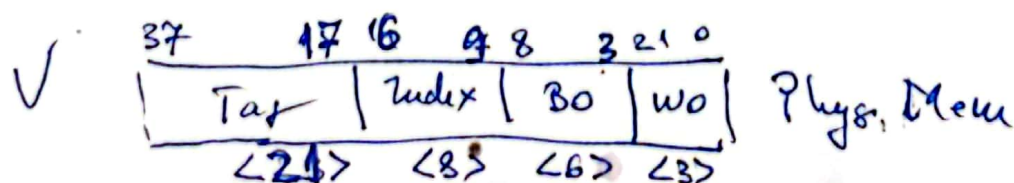 37 17 16 9 8 3 2 1 0
V Tag Index BO WO Phys. Mem
<21> <8> <6> <3>